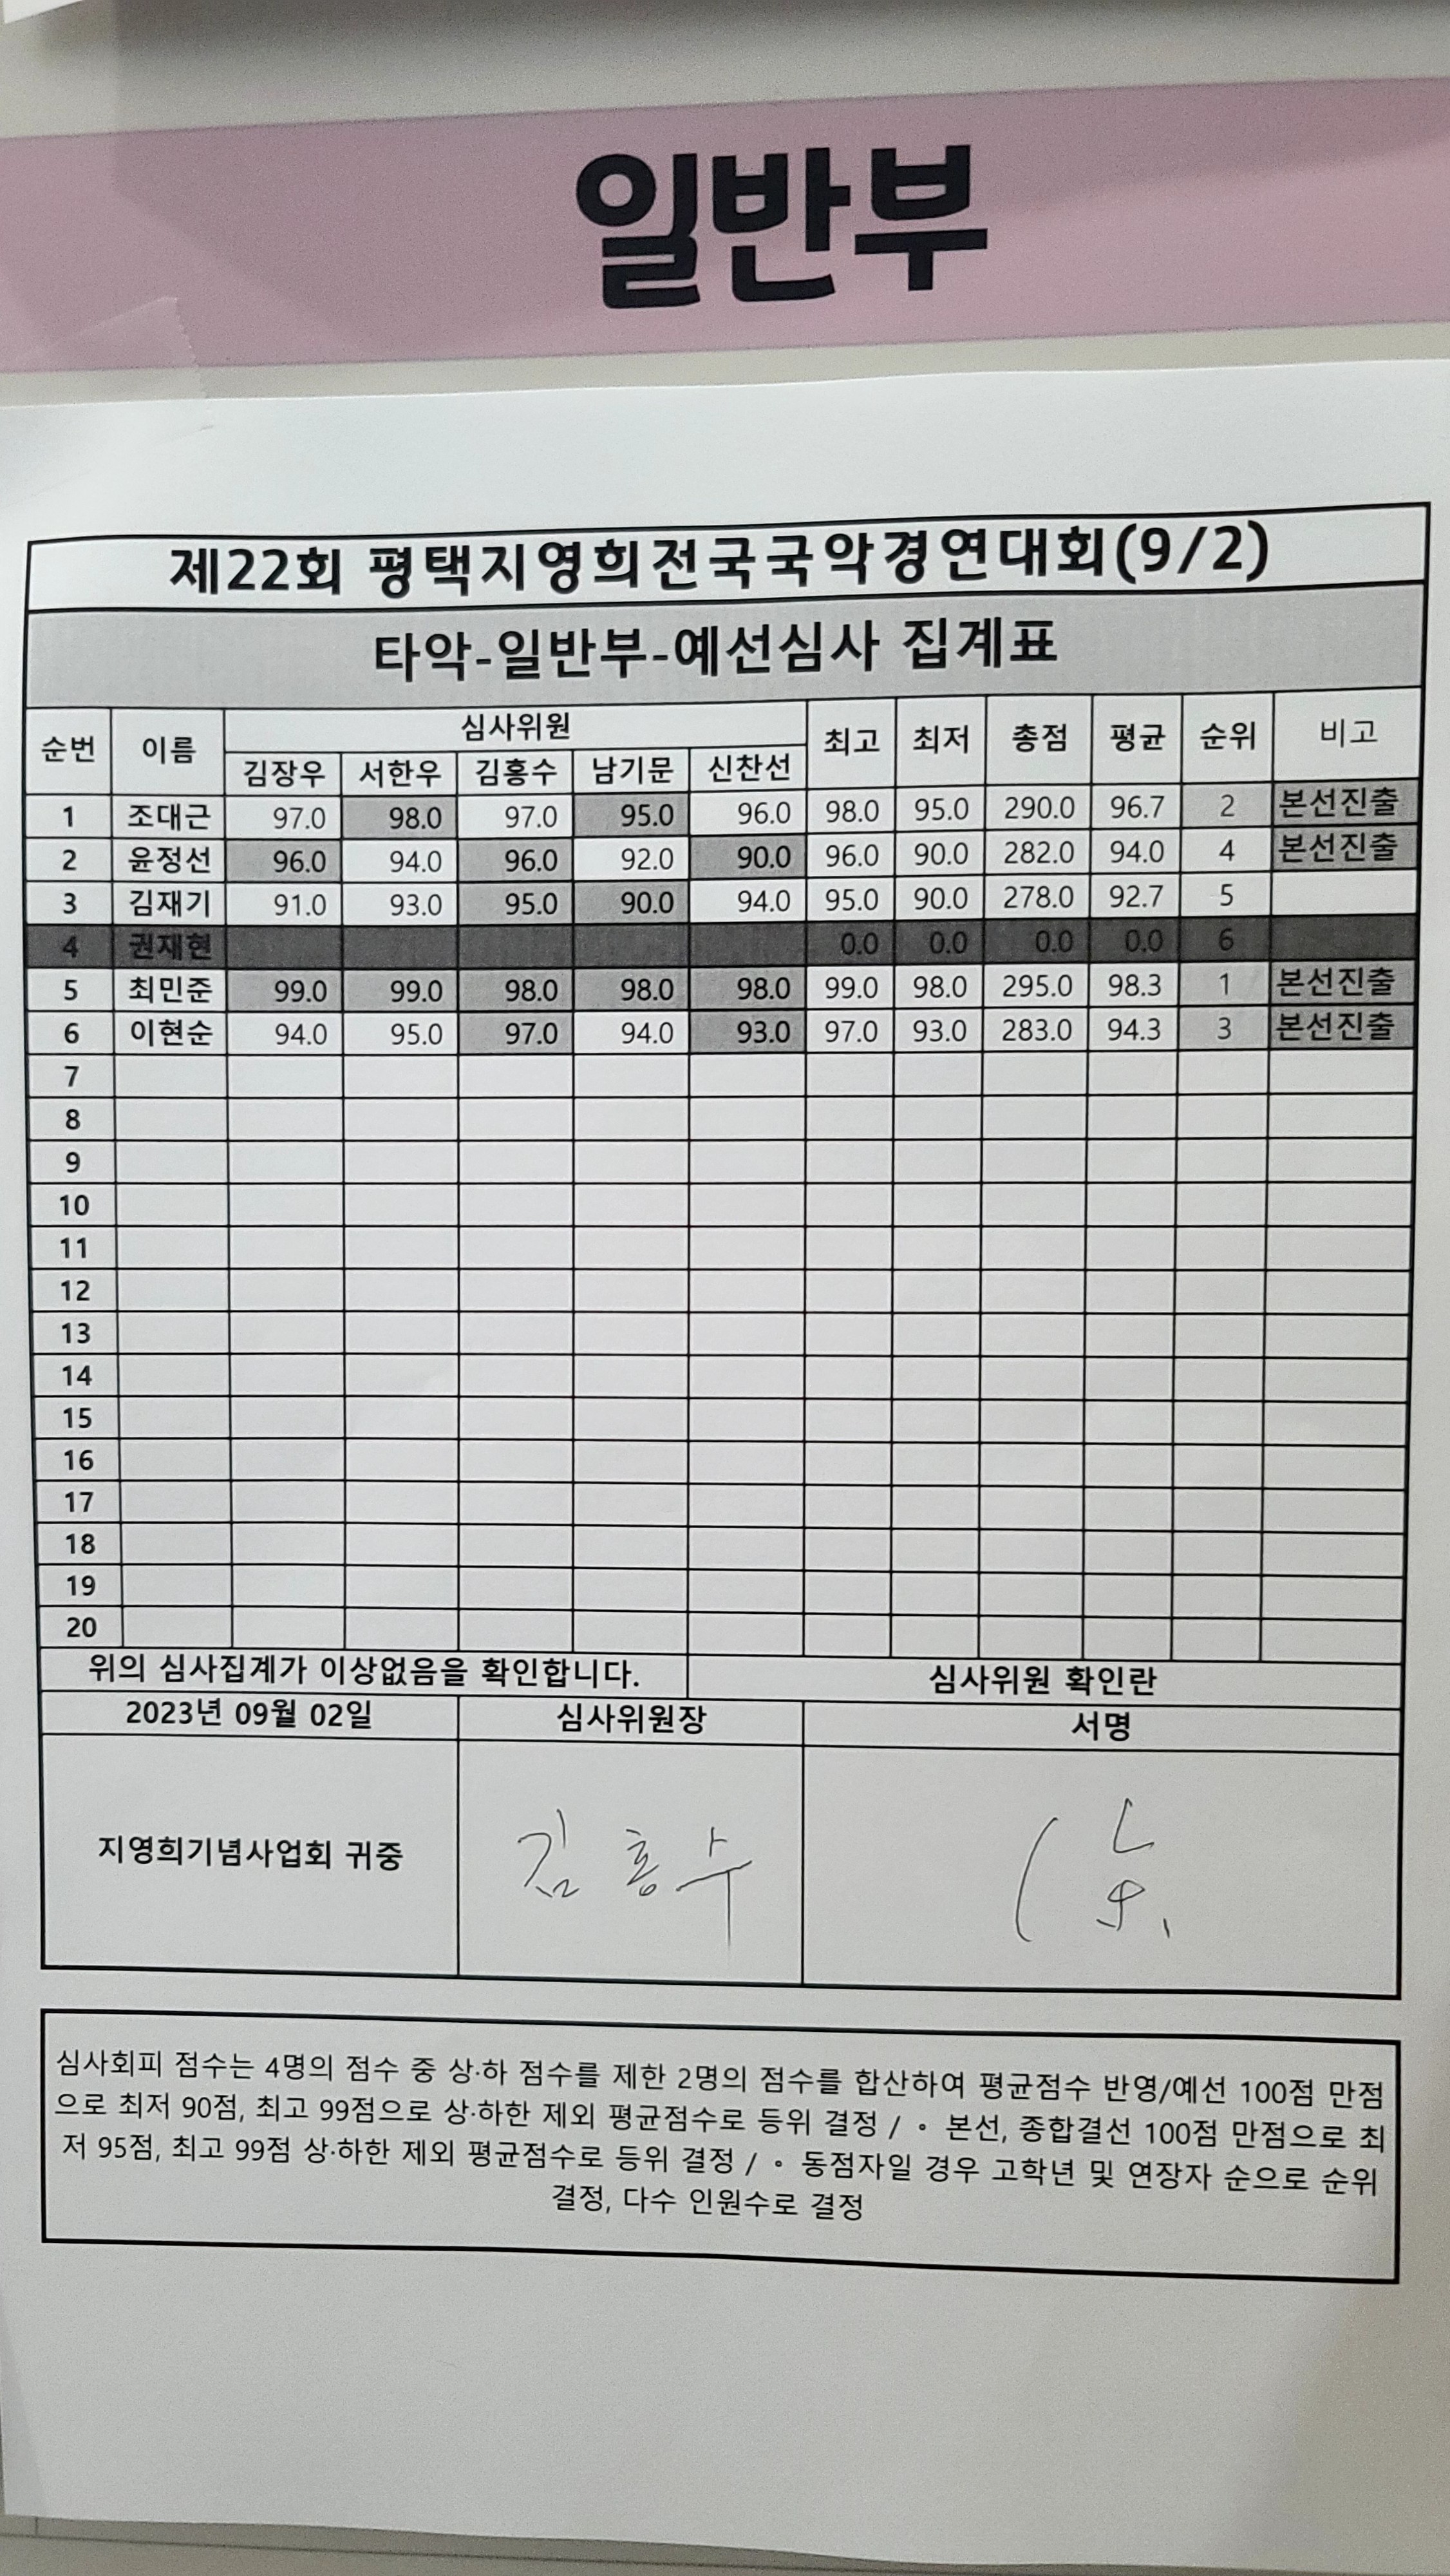 일반부
제22회 평택지영희전국국악경연대회(9/2)
타악-일반부-예선심사 집계표
순번 이름 심사위원 최고 최저 총점 평균 순위 비고
김장우 서한우 김홍수 남기문 신찬선
1 조대근 97.0 98.0 97.0 95.0 96.0 98.0 95.0 290.0 96.7 2 본선진출
2 윤정선 96.0 94.0 96.0 92.0 90.0 96.0 90.0 282.0 94.0 4 본선진출
3 김재기 91.0 93.0 95.0 90.0 94.0 95.0 90.0 278.0 92.7 5
4 권재현 0.0 0.0 0.0 0.0 6
5 최민준 99.0 99.0 98.0 98.0 98.0 99.0 98.0 295.0 98.3 1 본선진출
6 이현순 94.0 95.0 97.0 94.0 93.0 97.0 93.0 283.0 94.3 3 본선진출
7
8
9
10
11
12
13
14
15
16
17
18
19
20
위의 심사집계가 이상없음을 확인합니다. 심사위원 확인란
2023년 09월 02일 심사위원장 서명
지영희기념사업회 귀중 김홍수
심사회피 점수는 4명의 점수 중 상·하 점수를 제한 2명의 점수를 합산하여 평균점수 반영/예선 100점 만점
으로 최저 90점, 최고 99점으로 상·하한 제외 평균점수로 등위 결정 / ∘ 본선, 종합결선 100점 만점으로 최
저 95점, 최고 99점 상·하한 제외 평균점수로 등위 결정 / ∘ 동점자일 경우 고학년 및 연장자 순으로 순위
결정, 다수 인원수로 결정